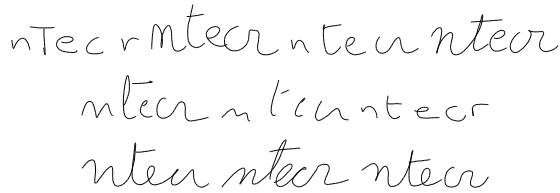 nTecr ntecr ntecr ntecr
ntecr ntecr ntecr
ntecr ntecr ntecr